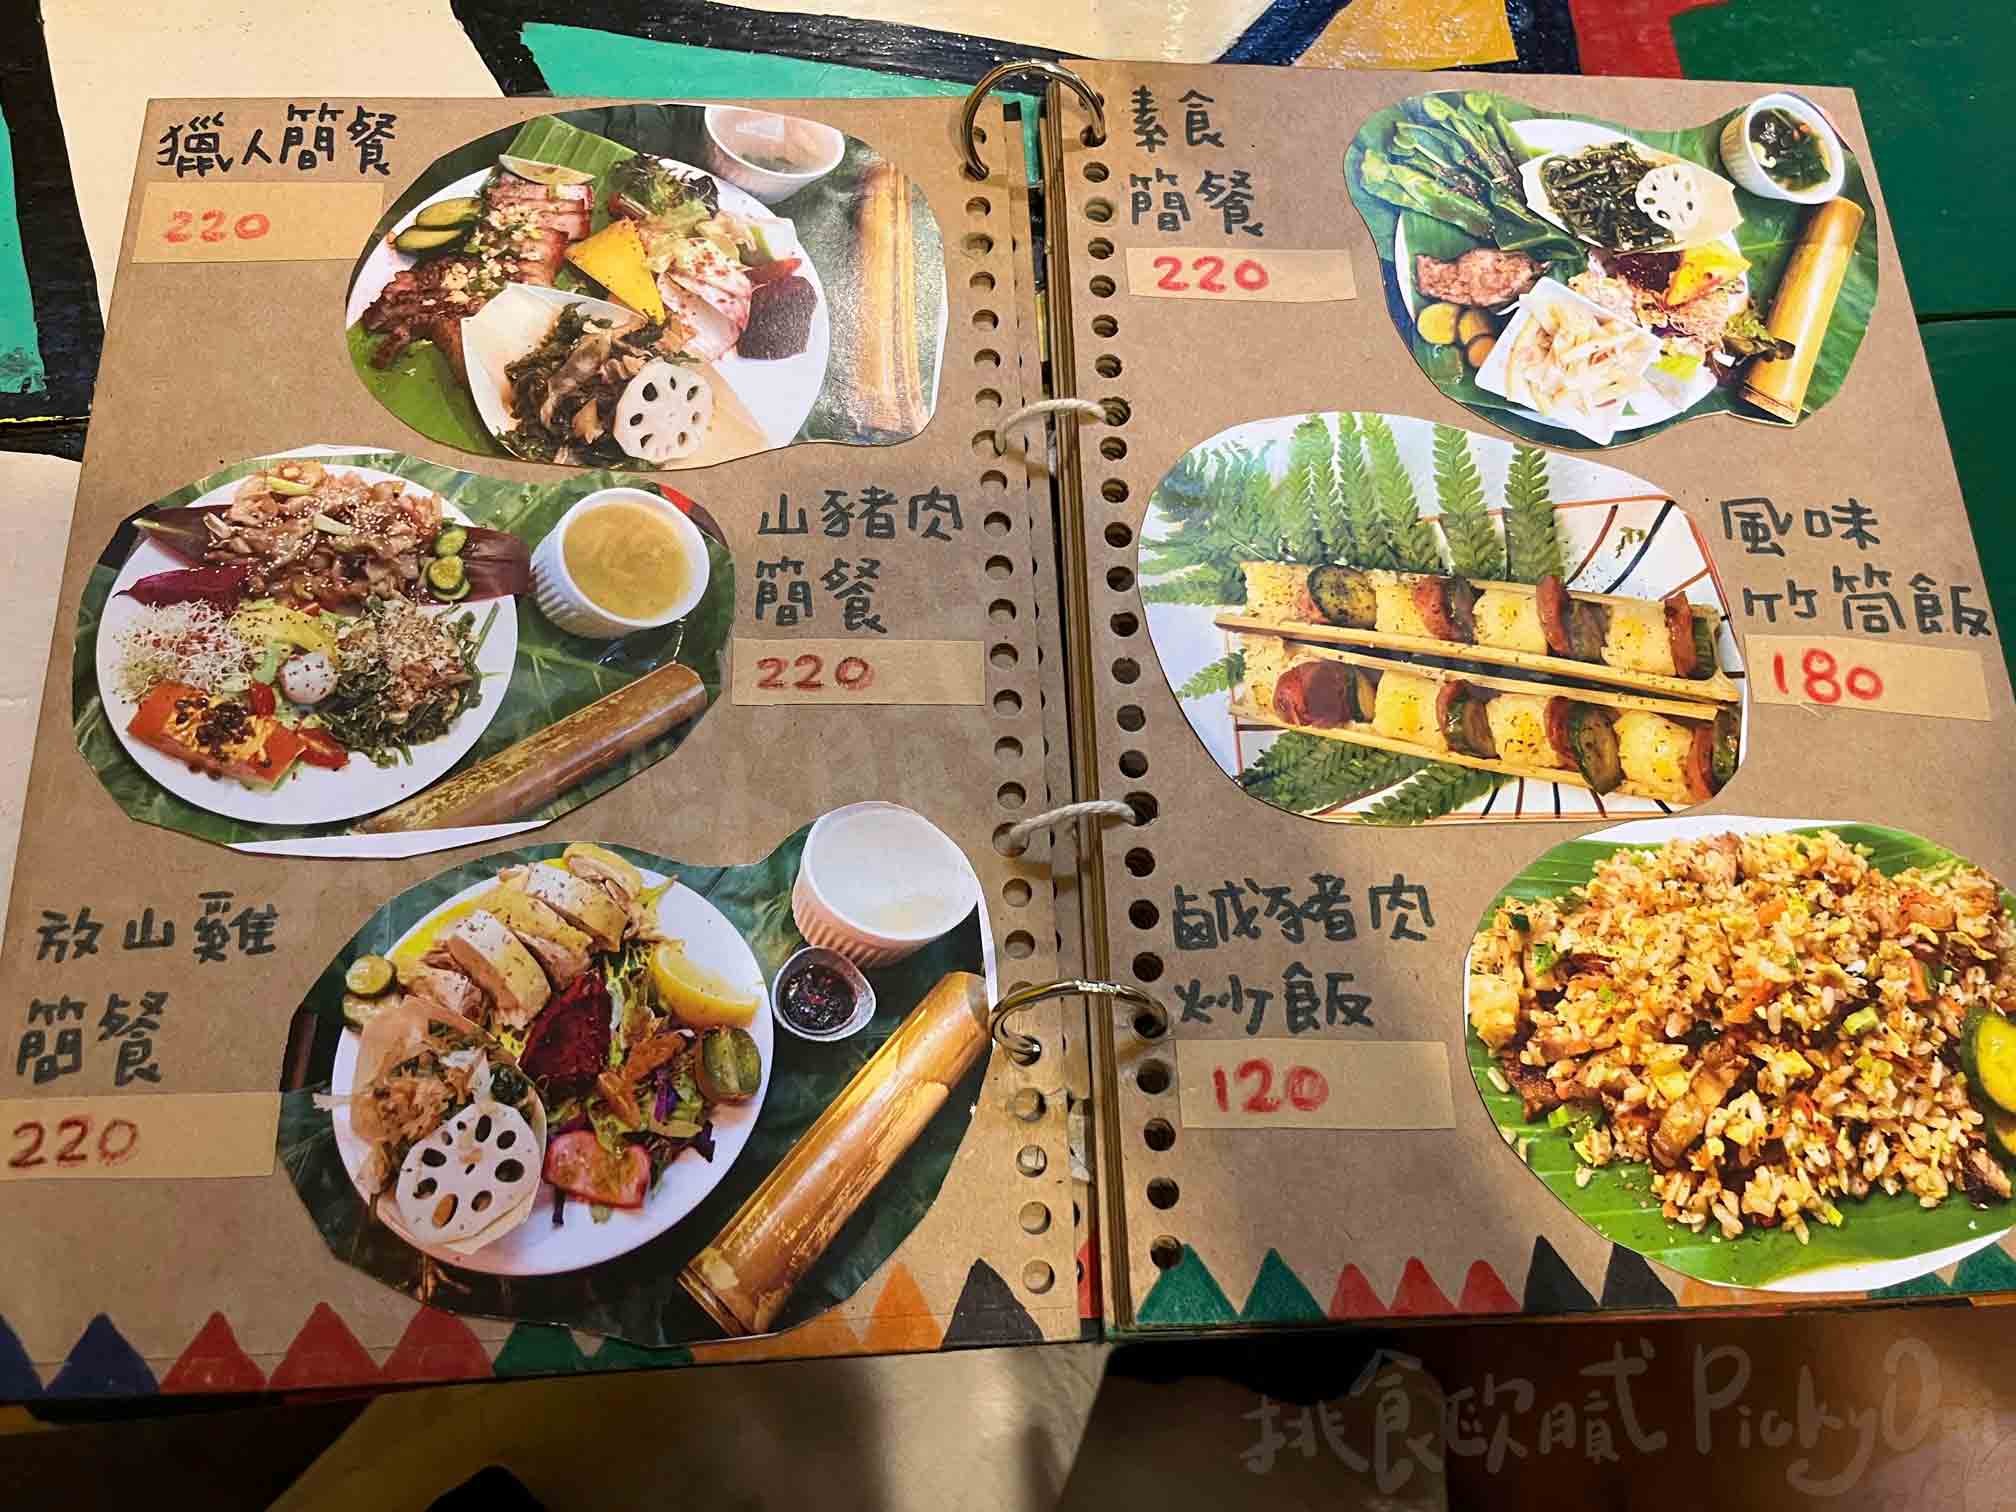 獵人簡餐
220
山豬肉
簡餐
220
放山雞
簡餐
220
素食
簡餐
220
風味
竹筒飯
180
鹹豬肉
炒飯
120
挑食歐膩貳 PickyOni